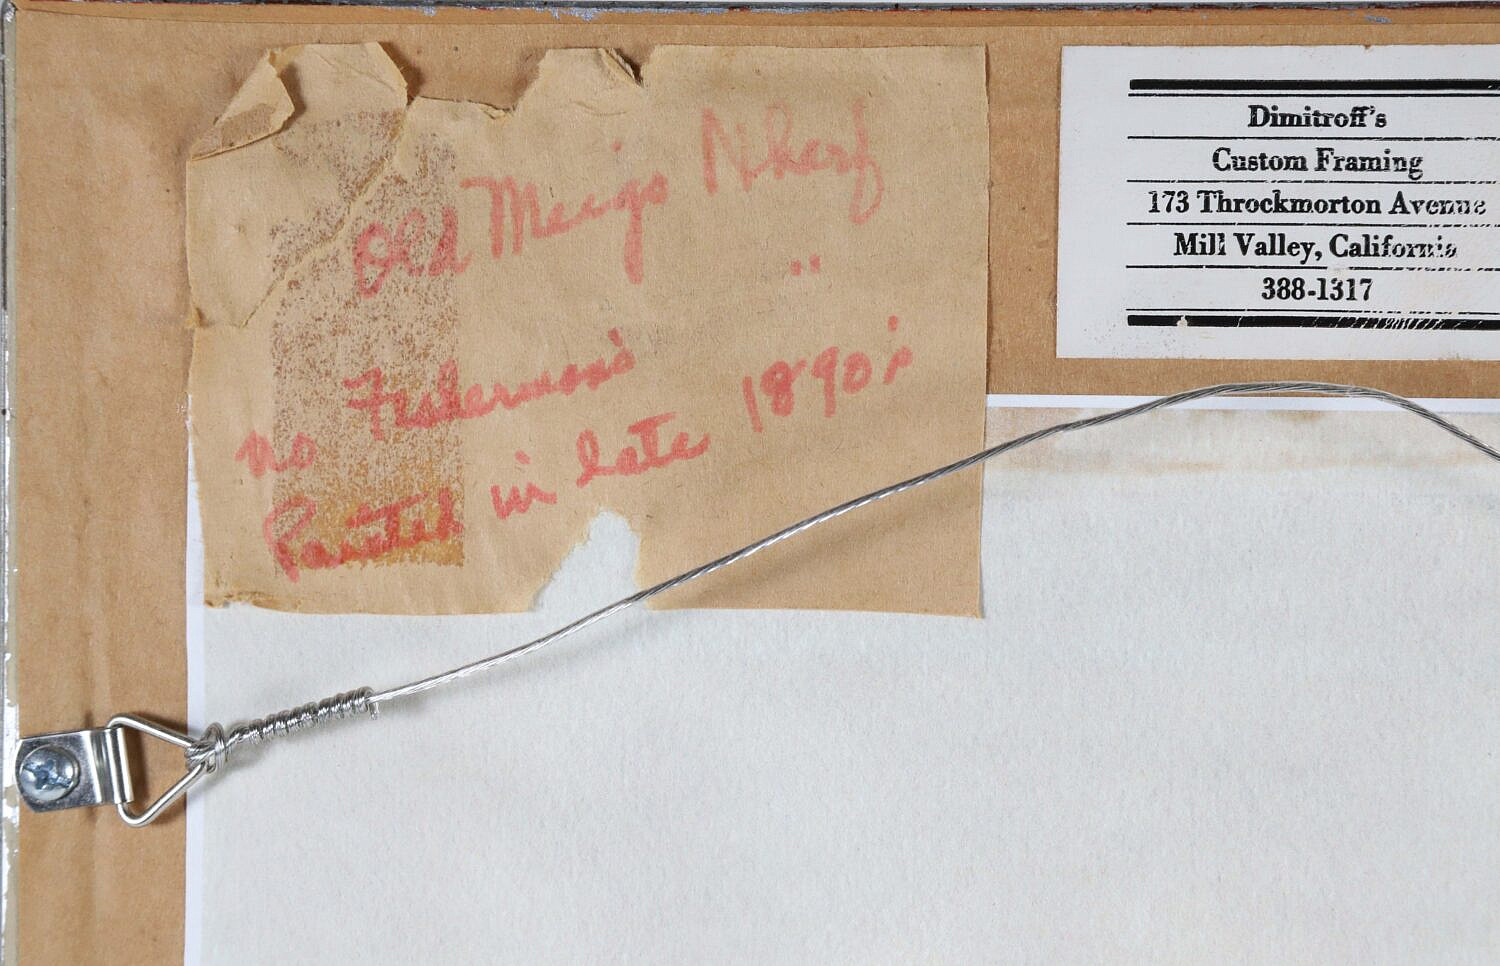 Old Meigs Wharf
"
no Fisherman's
Painted in late 1890's
Dimitroff's
Custom Framing
173 Throckmorton Avenue
Mill Valley, California
388-1317